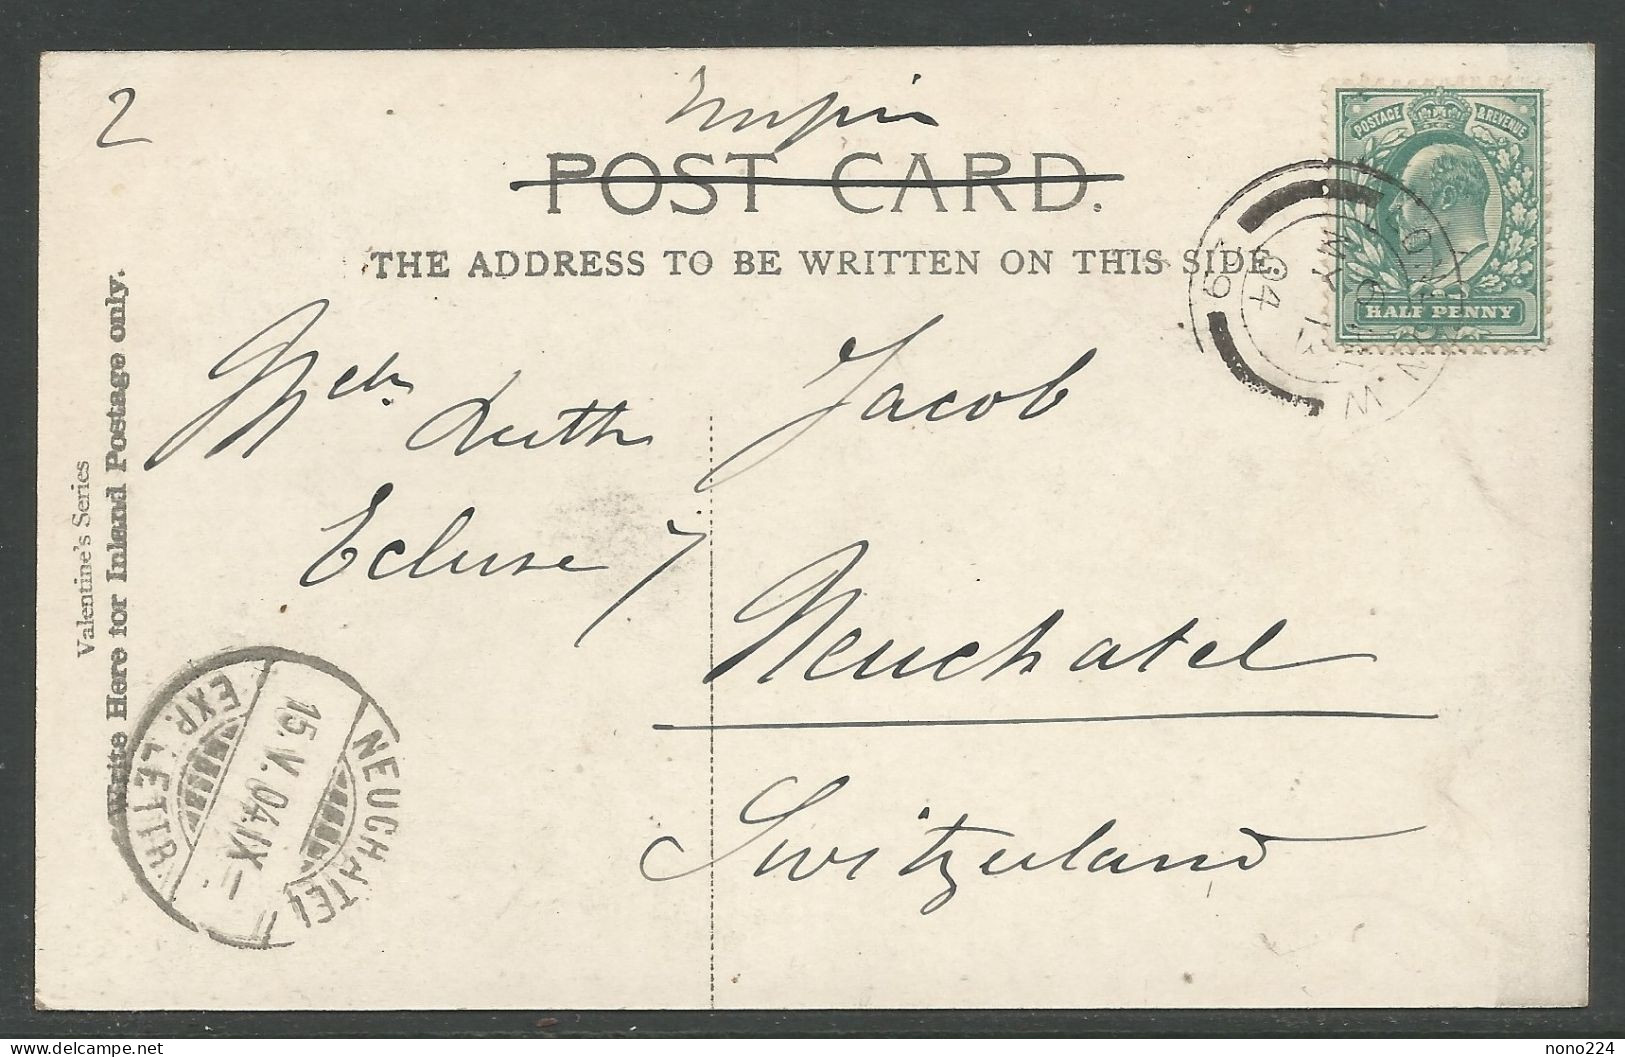 2
POST CARD.
THE ADDRESS TO BE WRITTEN ON THIS SIDE.
POSTAGE & REVENUE
HALF PENNY
LONDON. W
MY
04
79
Valentine's Series
Write Here for Inland Postage only.
Jacob
Ecluse 7
Neuchatel
Switzerland
NEUCHATEL
15.V.04.IX
EXP. LETTR.
nono224